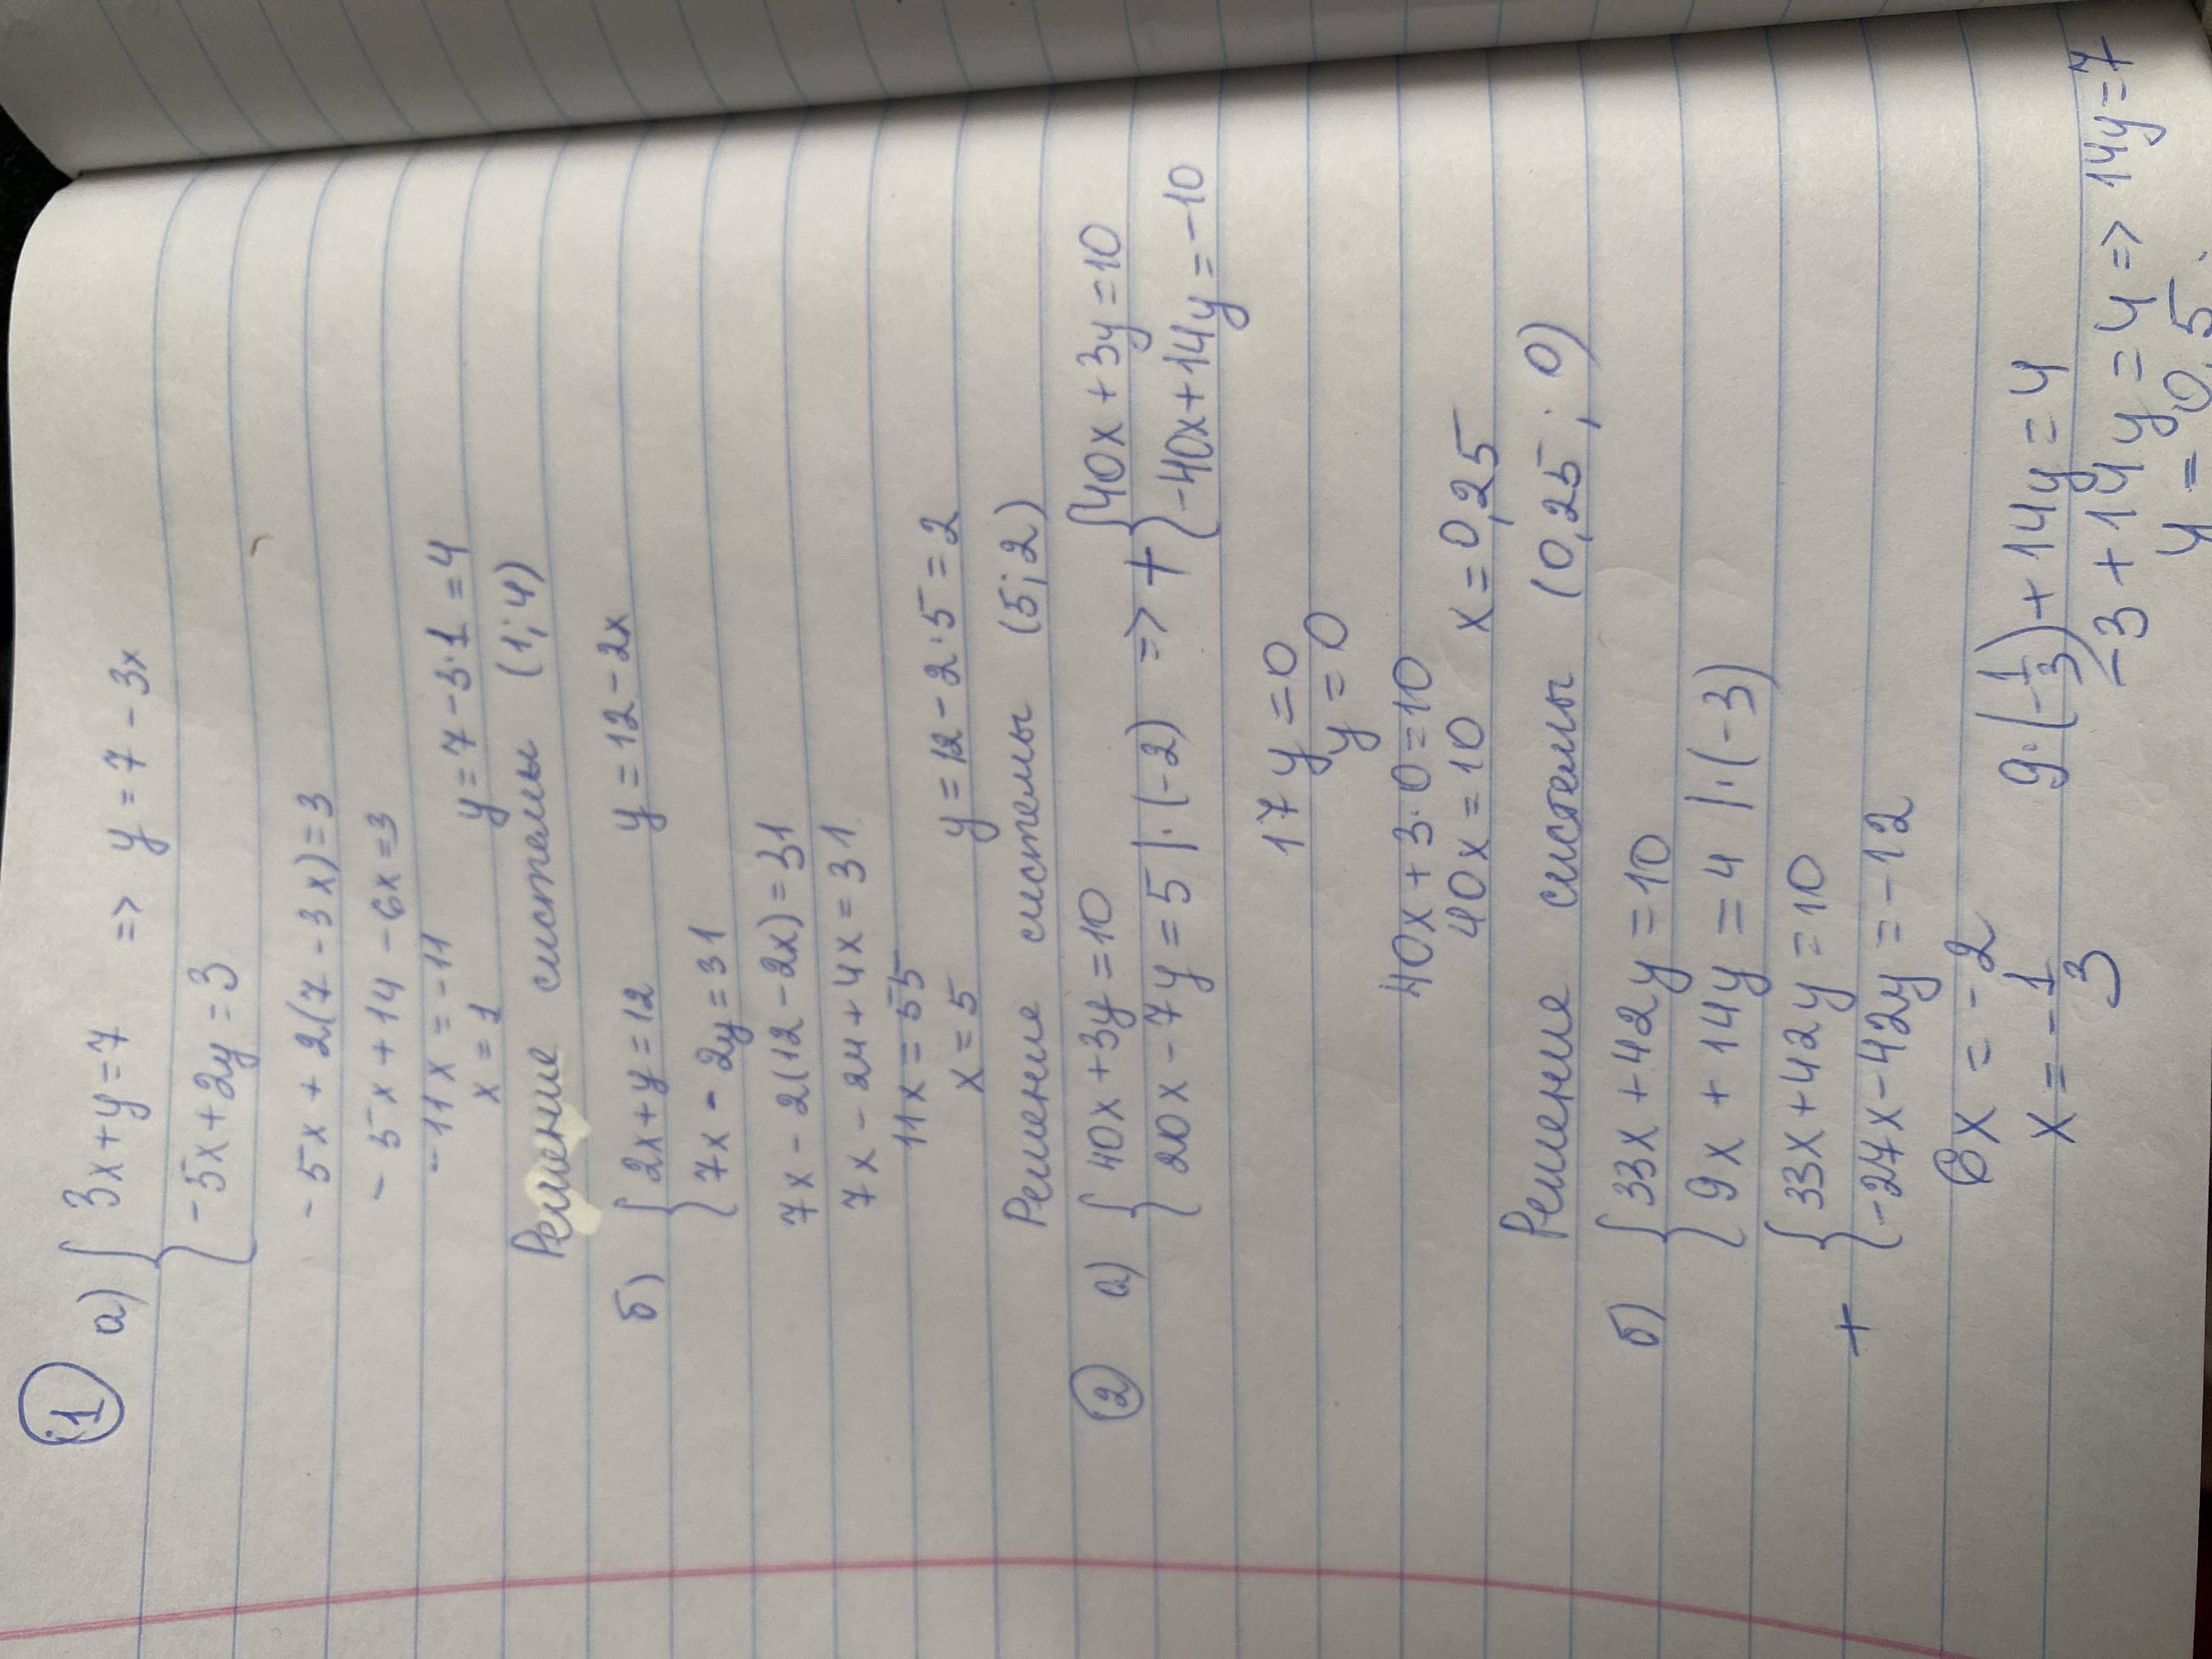 1
а) { 3x+y=7 => y=7-3x
{ -5x+2y=3
-5x+2(7-3x)=3
-5x+14-6x=3
-11x=-11
x=1 y=7-3·1=4
Решение системы (1;4)
б) { 2x+y=12 y=12-2x
{ 7x-2y=31
7x-2(12-2x)=31
7x-24+4x=31
11x=55
x=5 y=12-2·5=2
Решение системы (5;2)
2 а) { 40x+3y=10 => + { 40x+3y=10
{ 20x-7y=5 |·(-2) { -40x+14y=-10
17y=0
y=0
40x+3·0=10
40x=10 x=0,25
Решение системы (0,25; 0)
б) { 33x+42y=10
{ 9x+14y=4 |·(-3)
+ { 33x+42y=10
{ -27x-42y=-12
6x=-2
x=-1/3 9·(-1/3)+14y=4
-3+14y=4 => 14y=7
y=0,5.